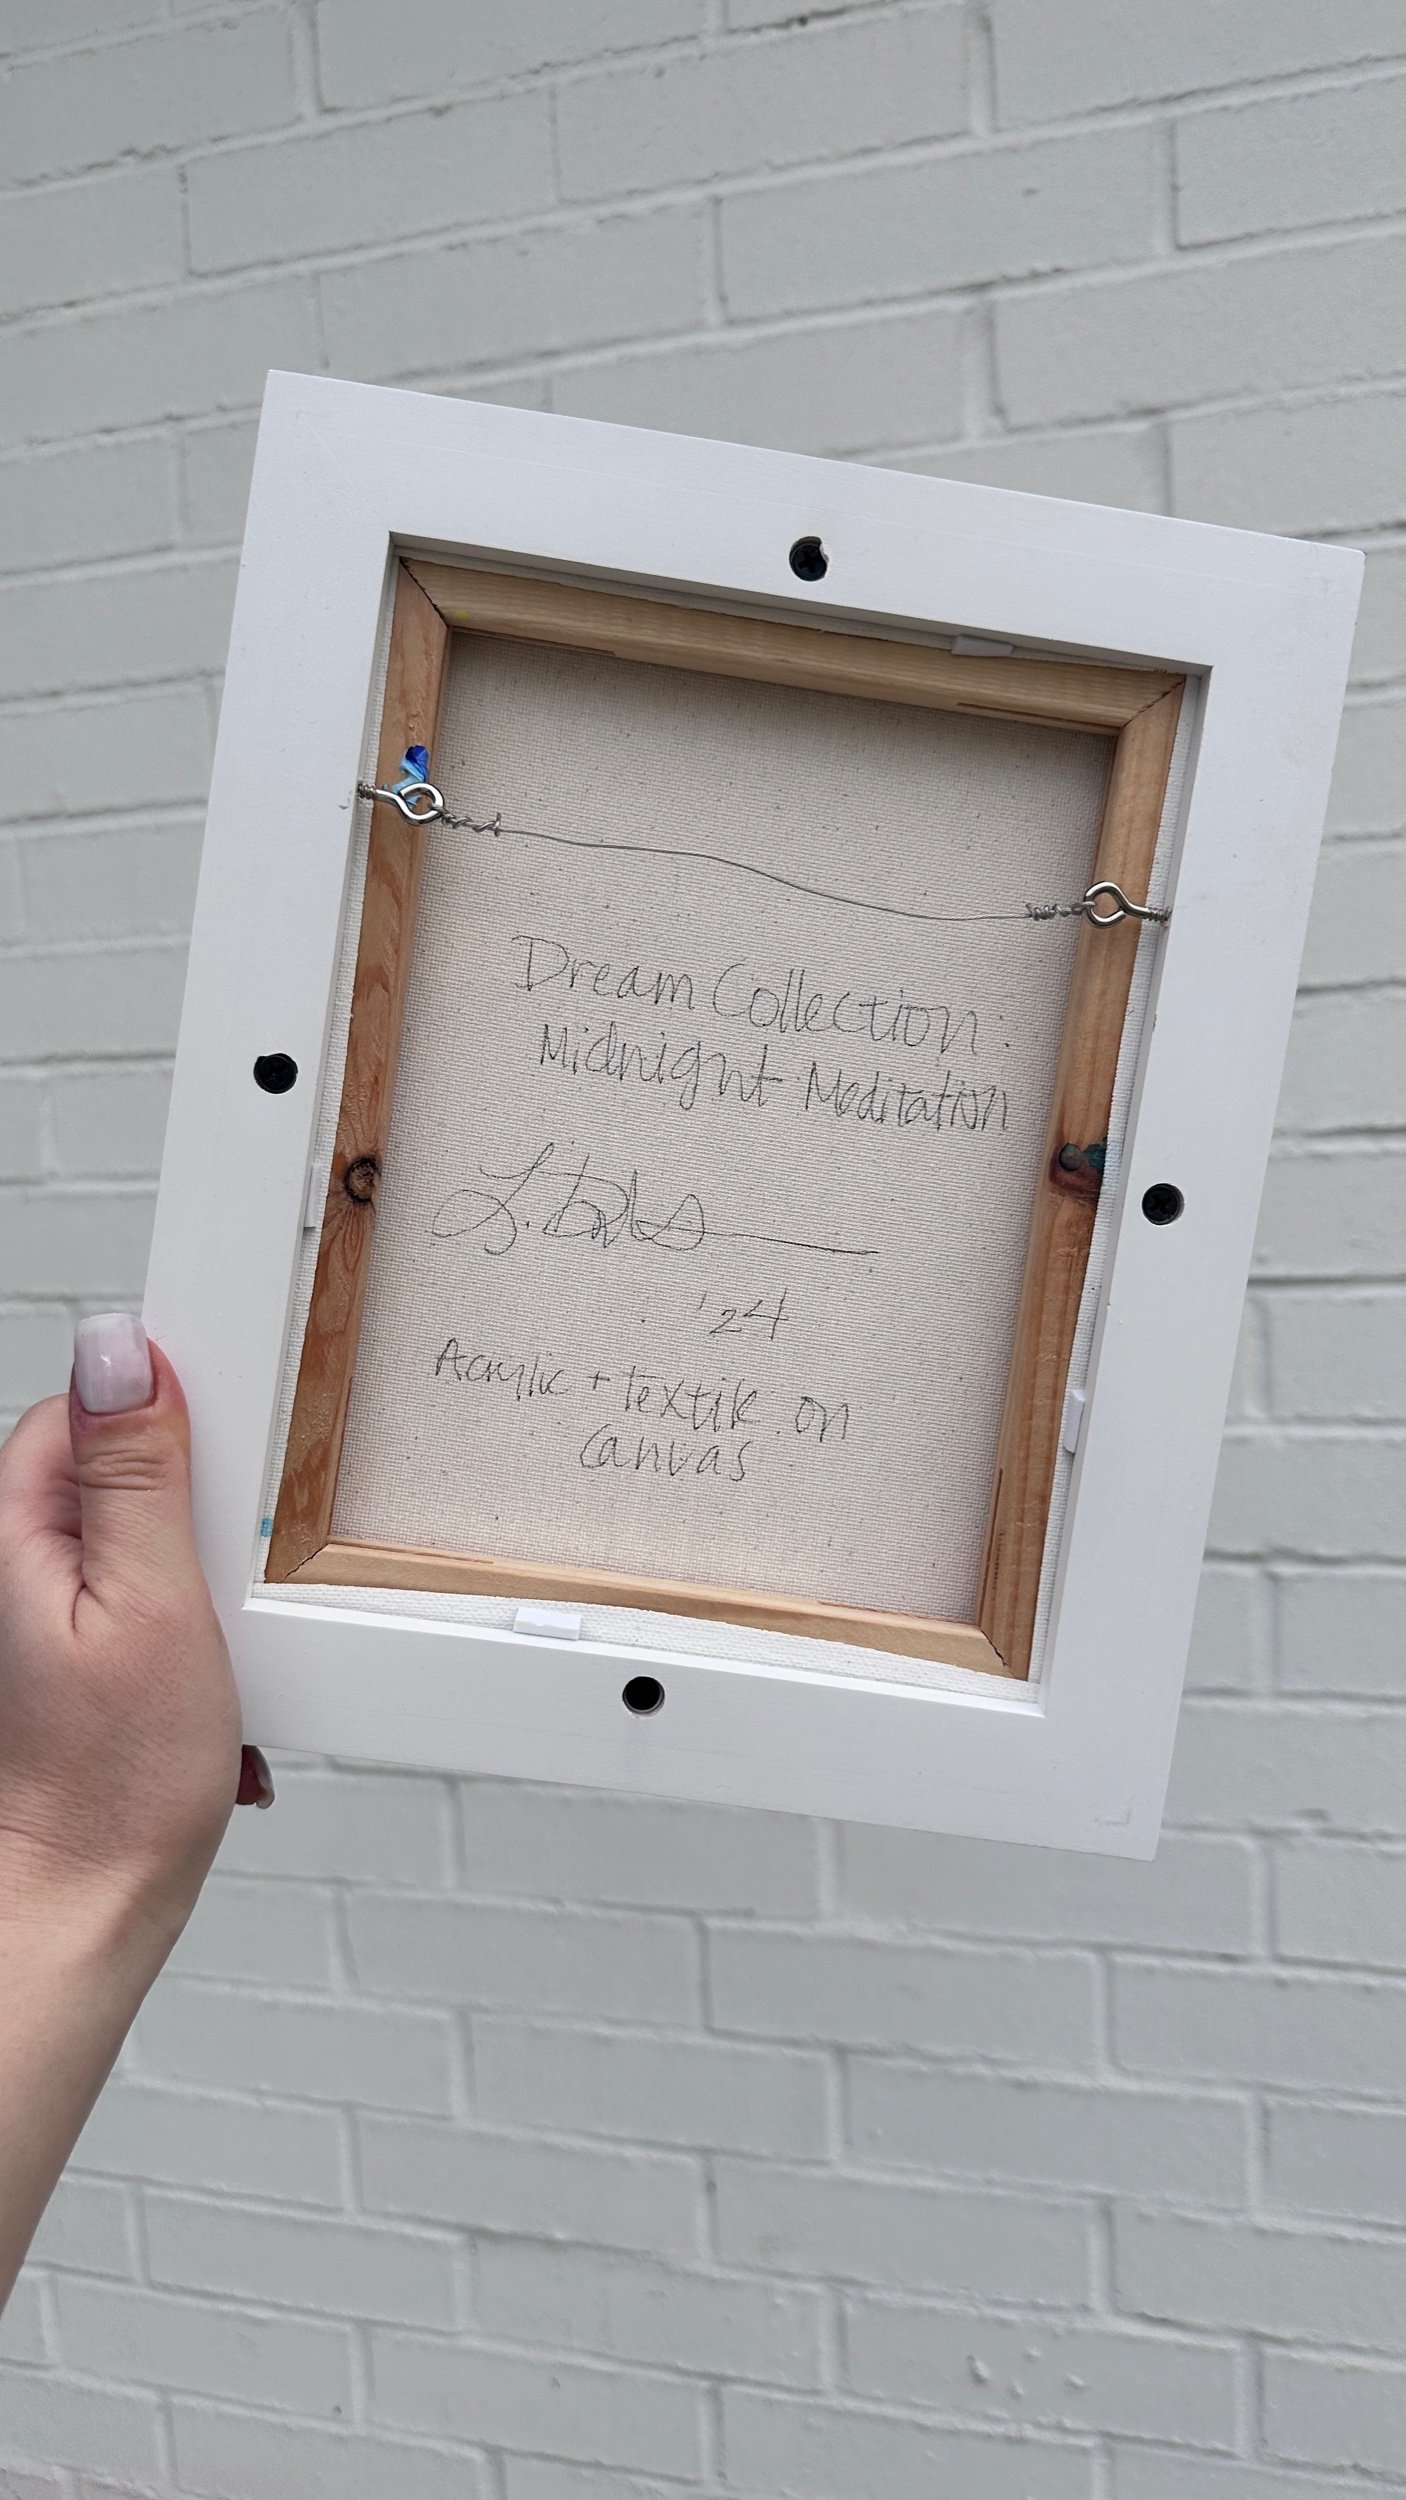 Dream Collection:
Midnight Meditation
'24
Acrylic + Textile on
Canvas